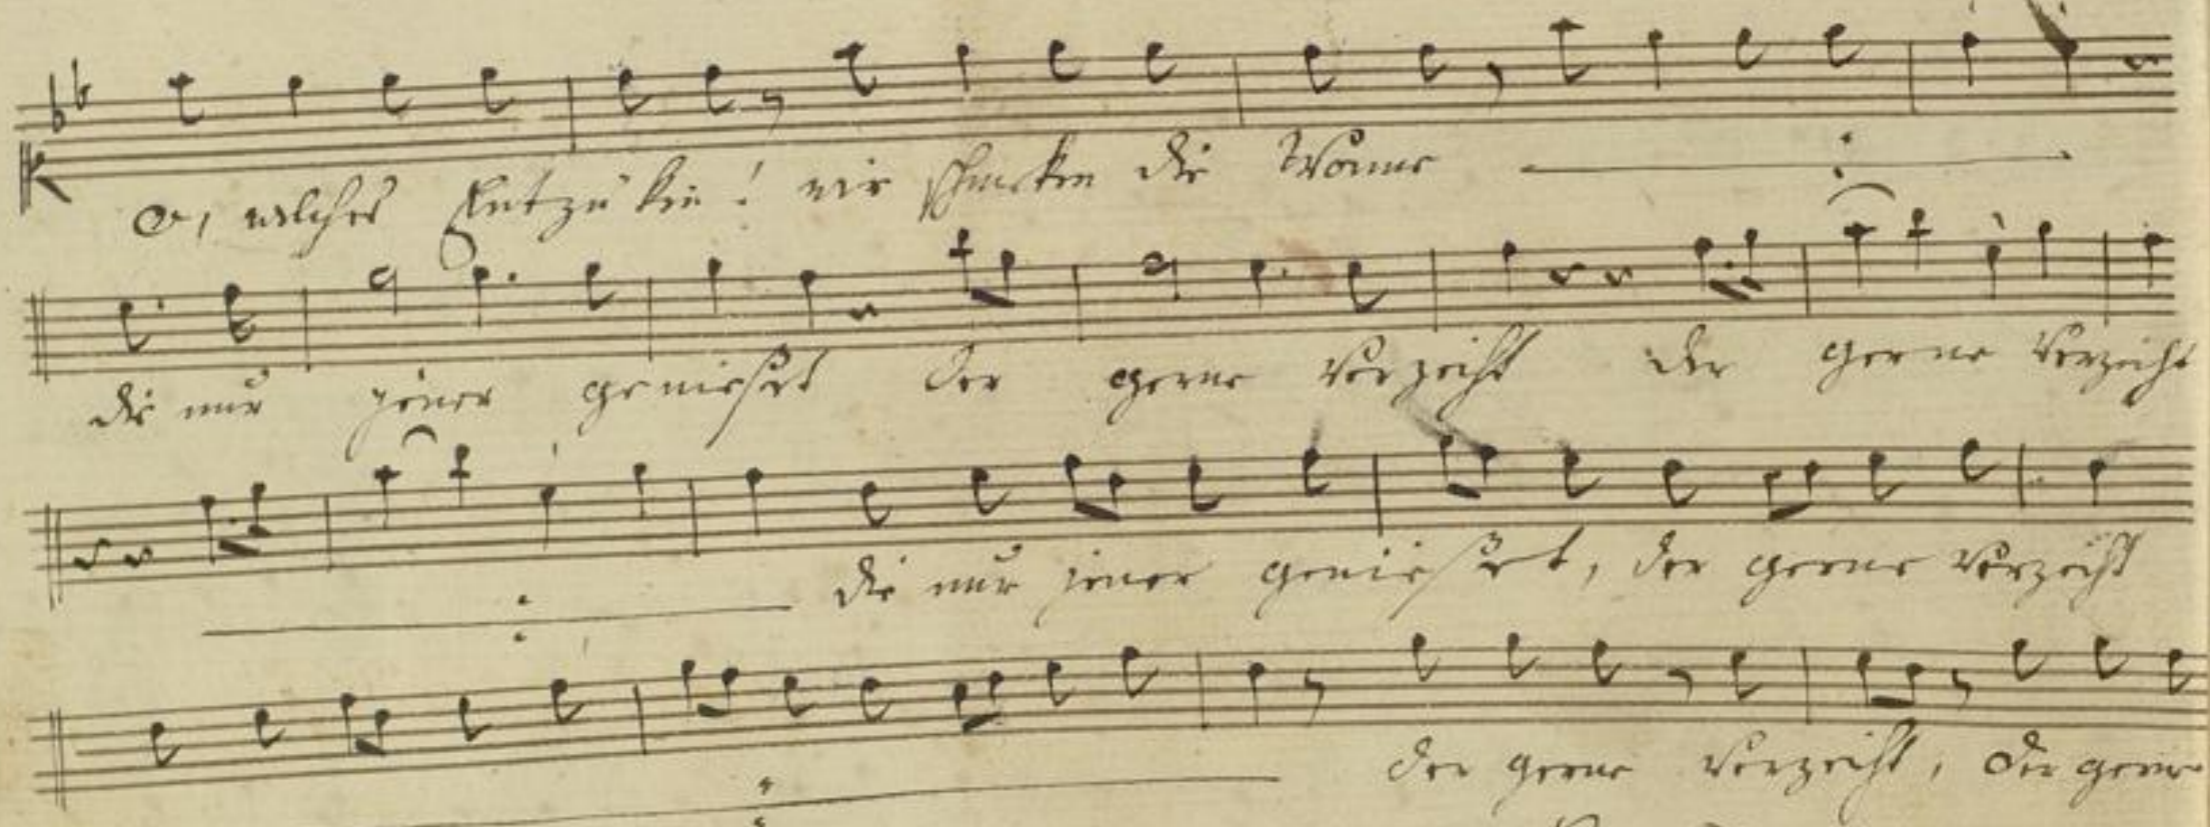 O, welches Entzüken! wir schmeken die Wonne
die nur jener genießet der gerne verzeiht der gerne verzeiht
die nur jener genießet, der gerne verzeiht
der gerne verzeiht, der gerne